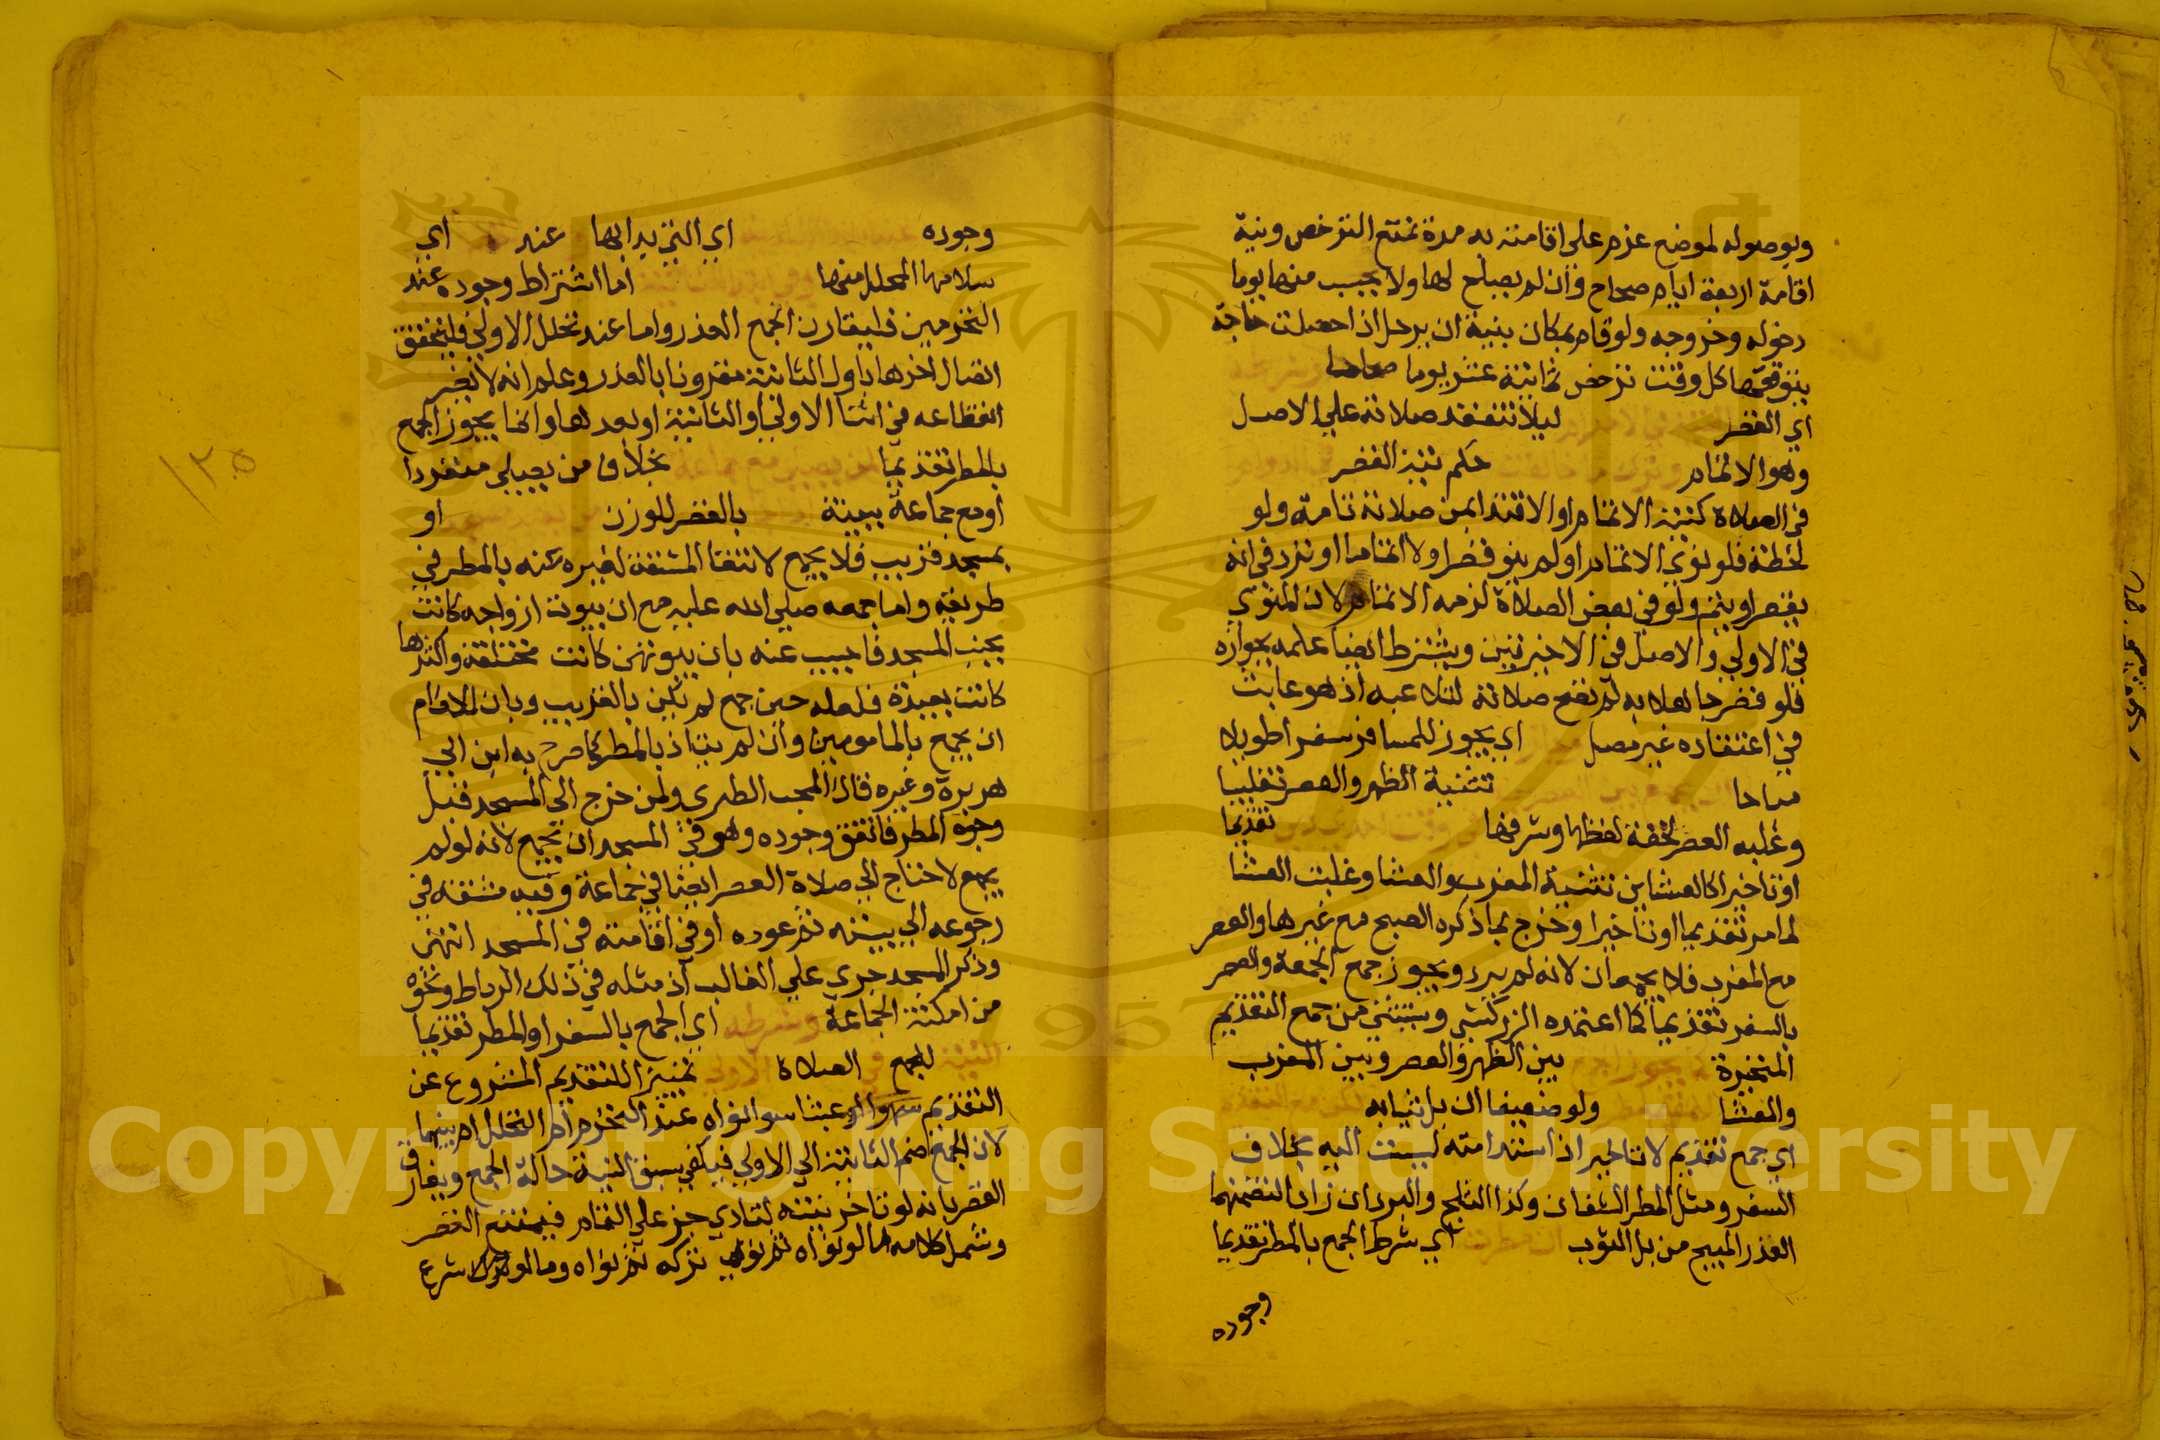 وبوصوله لموضع عزم علي اقامته به مدة تمنع الترخص ونية
اقامة اربعة ايام صحاح وان لم يصلح لها ولا يحسب منها يوما
دخوله وخروجه ولو قام بمكان بنية ان يرحل اذا حصلت حاجة
يتوقعها كل وقت ترخص ثمانية عشر يوما صحاحا
اي القصر ليلا تنعقد صلاته علي الاصل
وهو الاتمام حكم نية القصر
في الصلاة كنية الاتمام او الاقتدا بمن صلاته تامة ولو
لحظة فلو نوي الاتمام او لم ينو قصرا ولا اتماما او تردد في انه
يقصر او يتم ولو في بعض الصلاة لزمه الاتمام لان المنوي
في الاولي والاصل في الاخيرتين ويشترط ايضا علمه بجوازه
فلو قصر جاهلا به لم تصح صلاته لتلاعبه اذ هو عابث
في اعتقاده غير مصل اي يجوز للمسافر سفرا طويلا
مباحا تثنية الظهر والعصر تغليبا
وغلب العصر لخفة لفظها وشرفها تقديما
او تاخيرا كالعشاين تثنية المغرب والعشا وغلبت العشا
لما مر تقديما او تاخيرا وخرج بما ذكره الصبح مع غيرها والعصر
مع المغرب فلا يجمعان لانه لم يرد ويجوز جمع الجمعة والعصر
بالسفر تقديما كما اعتمده الزركشي ويستثني من جمع التقديم
المتحيرة يجوز الجمع بين الظهر والعصر وبين المغرب
والعشا ولو ضعيفا ان بل ثيابه
اي جمع تقديم لا تاخير اذ استدامته ليست اليه بخلاف
السفر ومثل المطر الشفان وكذا الثلج والبرد ان ذابا لتضمنهما
العذر المبيح من بل الثوب اي شرط الجمع بالمطر تقديما
وجوده
وجوده اي الثنتين بدابها عند اي
سلامها المحلل منها اما اشتراط وجوده عند
التحرمين فليقارن الجمع العذر واما عند تحلل الاولي فليتحقق
اتصال اخرها باول الثانية مقرونا بالعذر وعلم انه لا يضر
انقطاعه في اثنا الاولي او الثانية او بعدهما وانما يجوز الجمع
بالمطر تقديما بخلاف من يصلي منفردا
او مع جماعة ببيته بالقصر للوزن او
بمسجد قريب فلا يجمع لانتفا المشقة لغيره عنه بالمطر في
طريقه واما جمعه صلي الله عليه مع ان بيوت ازواجه كانت
بجنب المسجد فاجيب عنه بان بيوتهن كانت مختلفة واكثرها
كانت بعيدة فلعله حين جمع لم يكن بالقريب وبان للامام
ان يجمع بالمامومين وان لم يتاذ بالمطر كما صرح به ابن ابي
هريرة وغيره قال المحب الطبري ولمن خرج الي المسجد قبل
وجود المطر فاتفق وجوده وهو في المسجد ان يجمع لانه لو لم
يجمع لاحتاج الي صلاة العصر ايضا في جماعة وفيه مشقة في
رجوعه الي بيته ثم عوده او في اقامته في المسجد انتهي
وذكر المسجد جري علي الغالب اذ مثله في ذلك الرباط ونحوه
من امكنة الجماعة وشرطه اي الجمع بالسفر او المطر تقديما
النية في الاولي للجمع الصلاة تمييزا للتقديم المشروع عن
التقديم سهوا او عبثا سوا نواه عند التحرم ام التحلل ام بينهما
لان الجمع ضم الثانية الي الاولي فيكفي سبق النية حالة الجمع ويفارق
القصر بانه لو تاخر نيته لتادي جزء علي التمام فيمتنع القصر
وشمل كلامه ما لو نواه ثم نوي تركه ثم نواه وما لو شرع
١٣٥